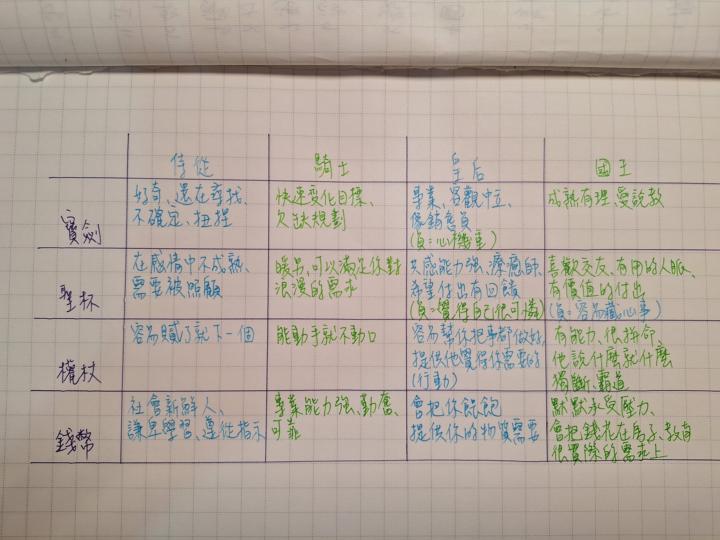 侍從 騎士 皇后 國王
寶劍
好奇、還在尋找、
不確定、扭捏
快速变化目標、
欠缺規劃
專業、客觀中立、
像銷售員
(負：心機重)
成熟有理、愛說教
聖杯
在感情中不成熟、
需要被照顧
暖男、可以滿足你對
浪漫的需求
共感能力強、療癒師、
希望付出有回饋
(負：覺得自己很可憐)
喜歡交友、有用的人脈、
有價值的付出
(負：容易藏心事)
權杖
容易膩了就下一個
能動手就不動口
容易幫你把事都做好,
提供他覺得你需要的
(行動)
有能力、很拼命、
他說什麼就什麼
獨斷、霸道
錢幣
社會新鮮人、
謙卑學習、遵從指示
專業能力強、勤奮、
可靠
會把你餵飽
提供你的物質需要
默默承受壓力、
會把錢花在房子、教育
很實際的需求上